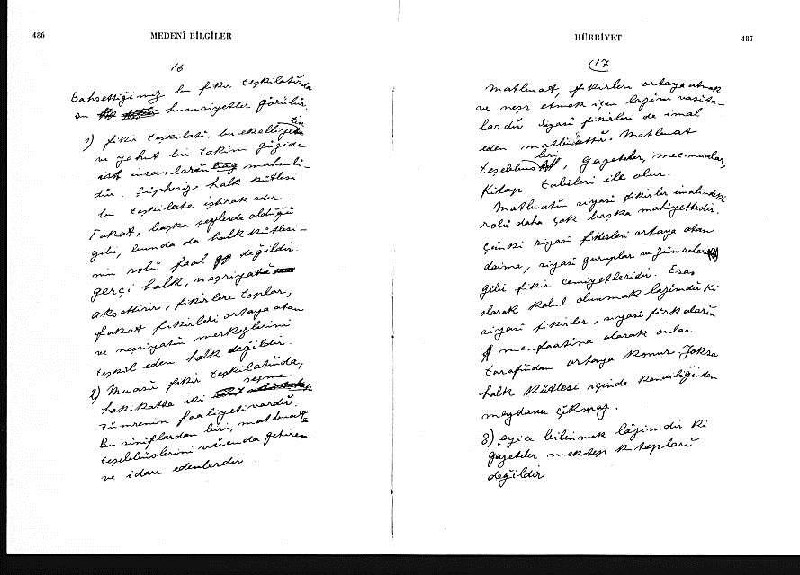 486
MEDENİ BİLGİLER
16
bahsettiğimiz bu fikir teşkilâtında
hususiyetler görülür.
1) fikir teşkilâtı, bir ekalliyetin
ve yahut bir takım güzide
insanların malıdır.
Şüphesiz halk kütlesi
bu teşkilâta iştirak eder
Fakat, başka şeylerde olduğu
gibi, bunda da halk kütlesi-
nin rolü faal değildir.
gerçi halk, neşriyatı
aksettirir, fikirlere toplar,
fakat fikirleri ortaya atan
ve neşriyatın merkezlerini
teşkil eden halk değildir.
2) Muasır fikir teşkilâtında,
hakikatta iki
zümrenin faaliyeti vardır.
Bu sınıflardan biri, matbuat
teşebbüslerini vücuda getiren
ve idare edenlerdir
HÜRRİYET
487
17
Matbuat, fikirleri ortaya atmak
ve neşretmek için lâzım vasıta-
lardır siyasî fikirleri de imal
eden matbuattır. Matbuat
teşebbüsleri, gazeteler, mecmualar,
kitap tabileri ile olur.
Matbuatın siyasî fikirler imalindeki
rolü daha çok başka mahiyettedir.
Çünkü siyasî fikirleri ortaya atan
daima, siyasî guruplar
gibi fikir cemiyetleridir. Esas
olarak kabul olunmak lâzımdır ki
siyasî fikirler, siyasî fırkaların
menfaatına olarak onlar
tarafından ortaya konur, Yoksa
halk kütlesi içinde kendiliğinden
meydana çıkmaz.
3) eyice bilinmek lâzımdır ki
gazeteler mektep kitapları
değildir